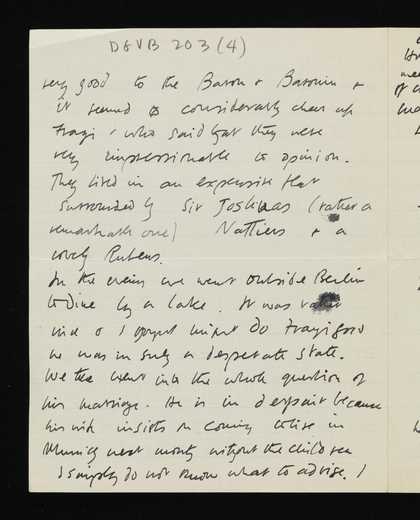 DEVB 203 (4)
very good to the Baron & Baronin &
it seemed to considerably cheer up
Fragi, who said that they were
very impressionable to opinion.
They lived in an expensive flat
surrounded by Sir Joshuas (rather a
remarkable one) Nattiers & a
lovely Rubens.
In the evening we went outside Berlin
to dine by a lake. It was rather
nice & I thought might do Fragi good
he was in such a desperate state.
We then went into the whole question of
his marriage. He is in despair because
his wife insists on coming to live in
Munich next month without the children
I simply do not know what to advise. I